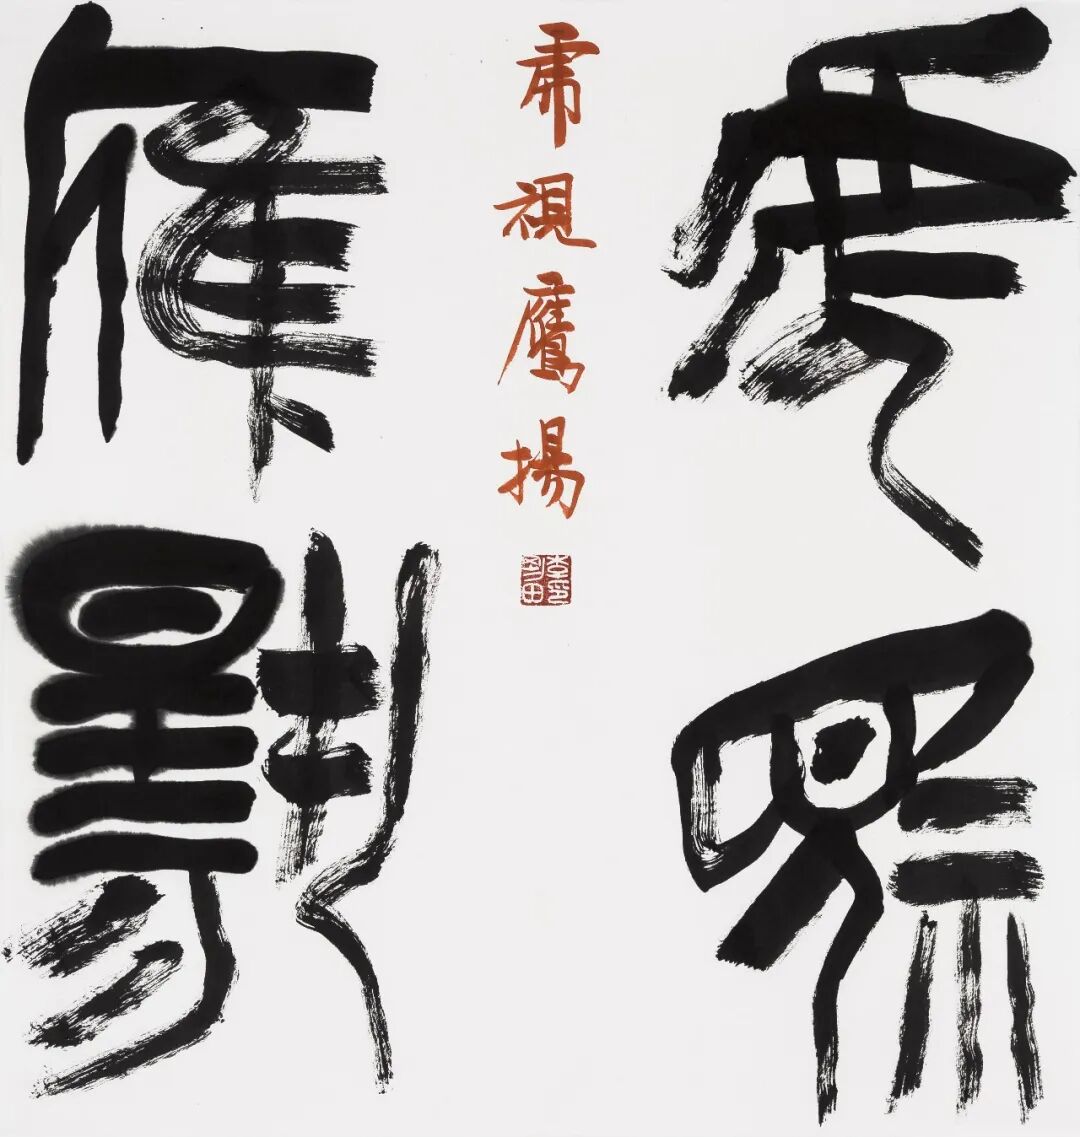 虎視
鷹揚
虎視鷹揚